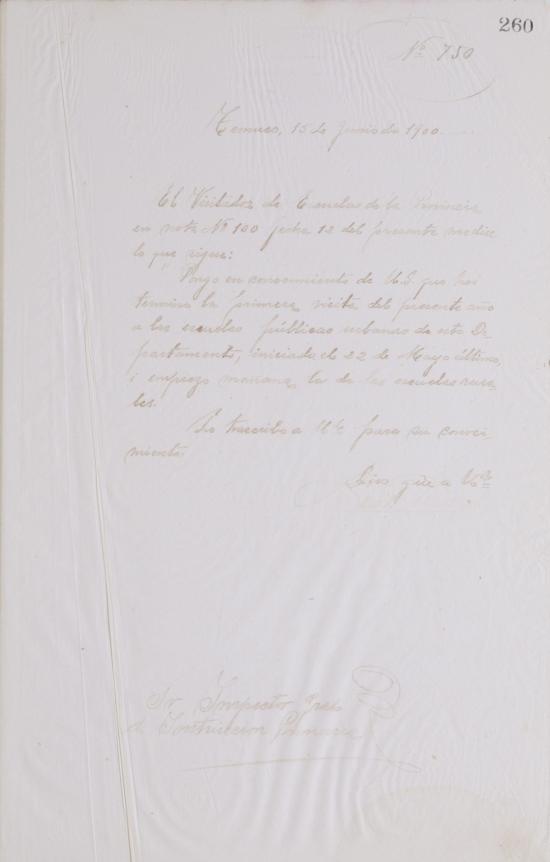 260
Nº 750
Temuco, 15 de Junio de 1900
El Visitador de Escuelas de la Provincia
en nota Nº 100 fecha 12 del presente me dice
lo que sigue:
"Pongo en conocimiento de U.S. que hoi
termino la primera visita del presente año
a las escuelas públicas urbanas de este De-
partamento, iniciada el 22 de Mayo último,
i empiezo mañana la de las escuelas rura-
les.
Lo trascribo a Ud. para su conoci-
miento.
Dios gůe a Ud.
Sr. Inspector Jral
de Instruccion Primaria